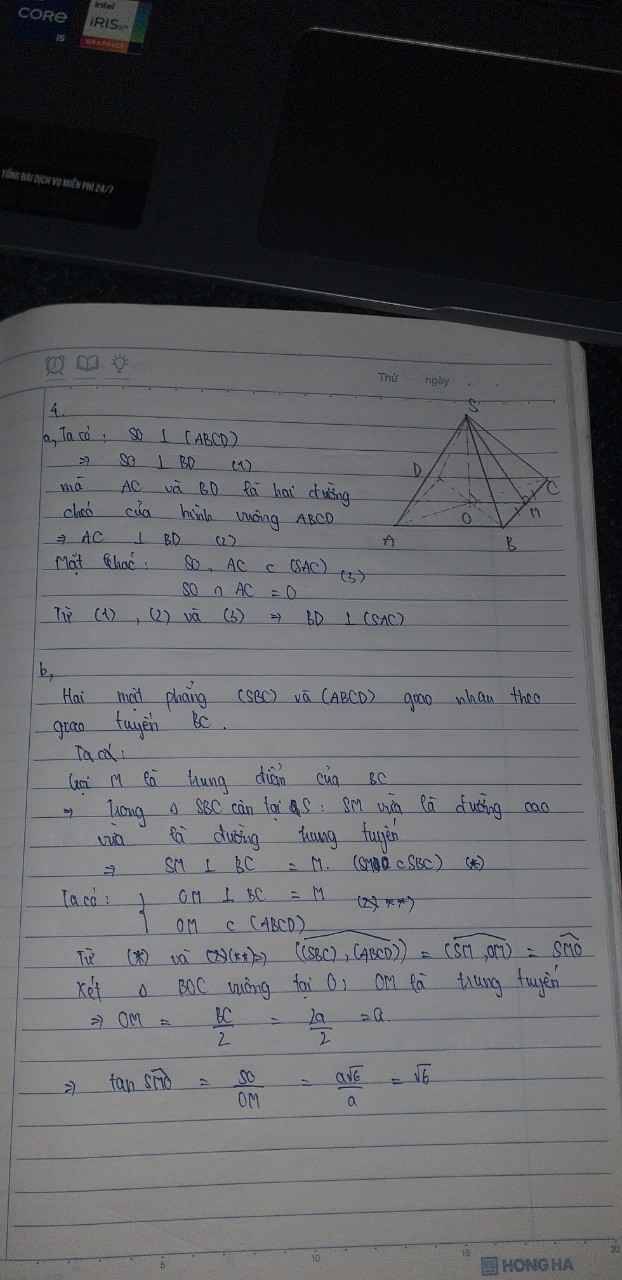 CORE
i5
intel
iRIS Xe
GRAPHICS
TỔNG ĐÀI DỊCH VỤ MIỄN PHÍ 24/7
Thứ ngày . .
4.
a, Ta có: SO ⊥ (ABCD)
⇒ SO ⊥ BD (1)
mà AC và BD là hai đường
chéo của hình vuông ABCD
⇒ AC ⊥ BD (2)
Mặt khác: SO, AC ⊂ (SAC) (3)
SO ∩ AC = O
Từ (1), (2) và (3) ⇒ BD ⊥ (SAC)
S
D
C
O
M
A
B
b,
Hai mặt phẳng (SBC) và (ABCD) giao nhau theo
giao tuyến BC.
Ta có:
Gọi M là trung điểm của BC
⇒ trong Δ SBC cân tại S: SM vừa là đường cao
vừa là đường trung tuyến
⇒ SM ⊥ BC = M. (SM ⊂ SBC) (*)
Ta có: { OM ⊥ BC = M (**)
OM ⊂ (ABCD)
Từ (*) và (**) ⇒ ((SBC), (ABCD)) = (SM, OM) = SMO
Xét Δ BOC vuông tại O; OM là trung tuyến
⇒ OM = BC/2 = 2a/2 = a
⇒ tan SMO = SO/OM = a√6/a = √6
5 10 15 20
HONG HA